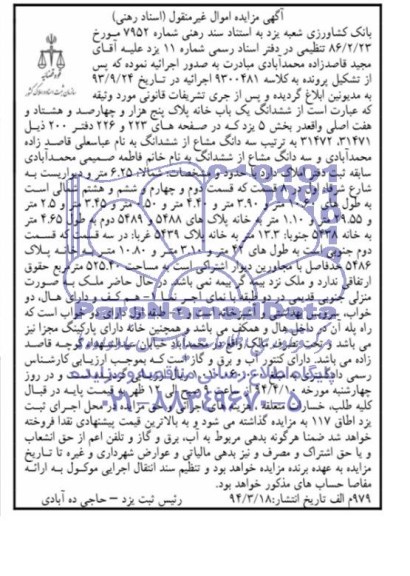 آگهی مزایده اموال غیرمنقول (اسناد رهنی)
بانک کشاورزی شعبه یزد به استناد سند رهنی شماره ۷۹۵۲ مورخ
۸۶/۲/۲۳ تنظیمی در دفتر اسناد رسمی شماره ۱۱ یزد علیه آقای
مجید قاصدزاده محمدآبادی مبادرت به صدور اجرائیه نموده که پس
از تشکیل پرونده به کلاسه ۹۳۰۰۴۸۱ اجرائیه در تاریخ ۹۳/۹/۲۴
به مدیونین ابلاغ گردیده و پس از جری تشریفات قانونی مورد وثیقه
که عبارت است از ششدانگ یک باب خانه پلاک پنج هزار و چهارصد و هشتاد و
هفت اصلی واقعدر بخش ۵ یزد که در صفحه های ۲۲۳ و ۲۲۶ دفتر ۲۰۰ ذیل
۳۱۴۷۱، ۳۱۴۷۲ به ترتیب سه دانگ مشاع از ششدانگ به نام عباسعلی قاصد زاده
محمدآبادی و سه دانگ مشاع از ششدانگ به نام خانم فاطمه صمیمی محمدآبادی
سابقه ثبت دفتر املاک دارد با حدود و مشخصات: شمالا: ۶.۲۵ متر دیواریست به
شارع
قسمت که قسمت دوم و چهارم و ششم و هشتم شمالی است
به طول های
۳.۹۰ متر و ۴.۴۰ متر و
۳.۴۵ متر و ۲.۵ متر
و ۲۹.۵۵ متر و ۱.۱۰ متر به خانه پلاک های ۵۴۸۸ و ۵۴۸۹ دوم به طول ۴.۶۵ متر
به خانه ۵۴۳۸ جنوبا: ۱۳.۳ متر به خانه پلاک ۵۴۳۹ غربا: در سه قسمت که قسمت
دوم جنوبی است به طول های
متر و ۳.۱۰ متر و ۱۰.۸۰ متر به خانه پلاک
۵۴۸۶ حدفاصل با مجاورین دیوار اشتراکی است به مساحت ۵۲۵.۲۰ مترمربع حقوق
ارتفاقی ندارد و ملک نزد بیمه گر بیمه نمی باشد در حال حاضر ملک به صورت
منزلی جنوبی قدیمی در دو طبقه با نمای آجر
همکف و دارای هال، دو
خواب، سرویس بهداشتی و آشپزخانه
طبقه اول دارای دو خواب است که
راه پله آن در داخل هال و همکف می باشد و همچنین خانه دارای پارکینگ مجزا نیز
می باشد
ملک واقع در محمدآباد خیابان
کوچه قاصد
زاده می باشد. دارای کنتور آب و برق و گاز است که بموجب ارزیابی کارشناس
رسمی دادگستری به مبلغ
و در روز
چهارشنبه مورخه ۹۴/۴/۱۰ از ساعت ۹ صبح الی ۱۲ ظهر به قیمت پایه در قبال
کلیه طلب، خسارت متعلقه، هزینه های اجرائی و حق مزایده در محل اجرای ثبت
یزد اطاق ۱۱۷ به مزایده گذاشته می شود و به بالاترین قیمت پیشنهادی نقدا فروخته
خواهد شد ضمنا هرگونه بدهی مربوط به آب، برق و گاز و تلفن اعم از حق انشعاب
و یا حق اشتراک و مصرف و نیز بدهی مالیاتی و عوارض شهرداری و غیره تا تاریخ
مزایده به عهده برنده مزایده خواهد بود و تنظیم سند انتقال اجرایی موکول به ارائه
مفاصا حساب های مذکور خواهد بود.
۹۷۹م الف تاریخ انتشار: ۹۴/۳/۱۸
رئیس ثبت یزد – حاجی ده آبادی
۰۲۱-۸۸۳۴۹۶۷۰-۵